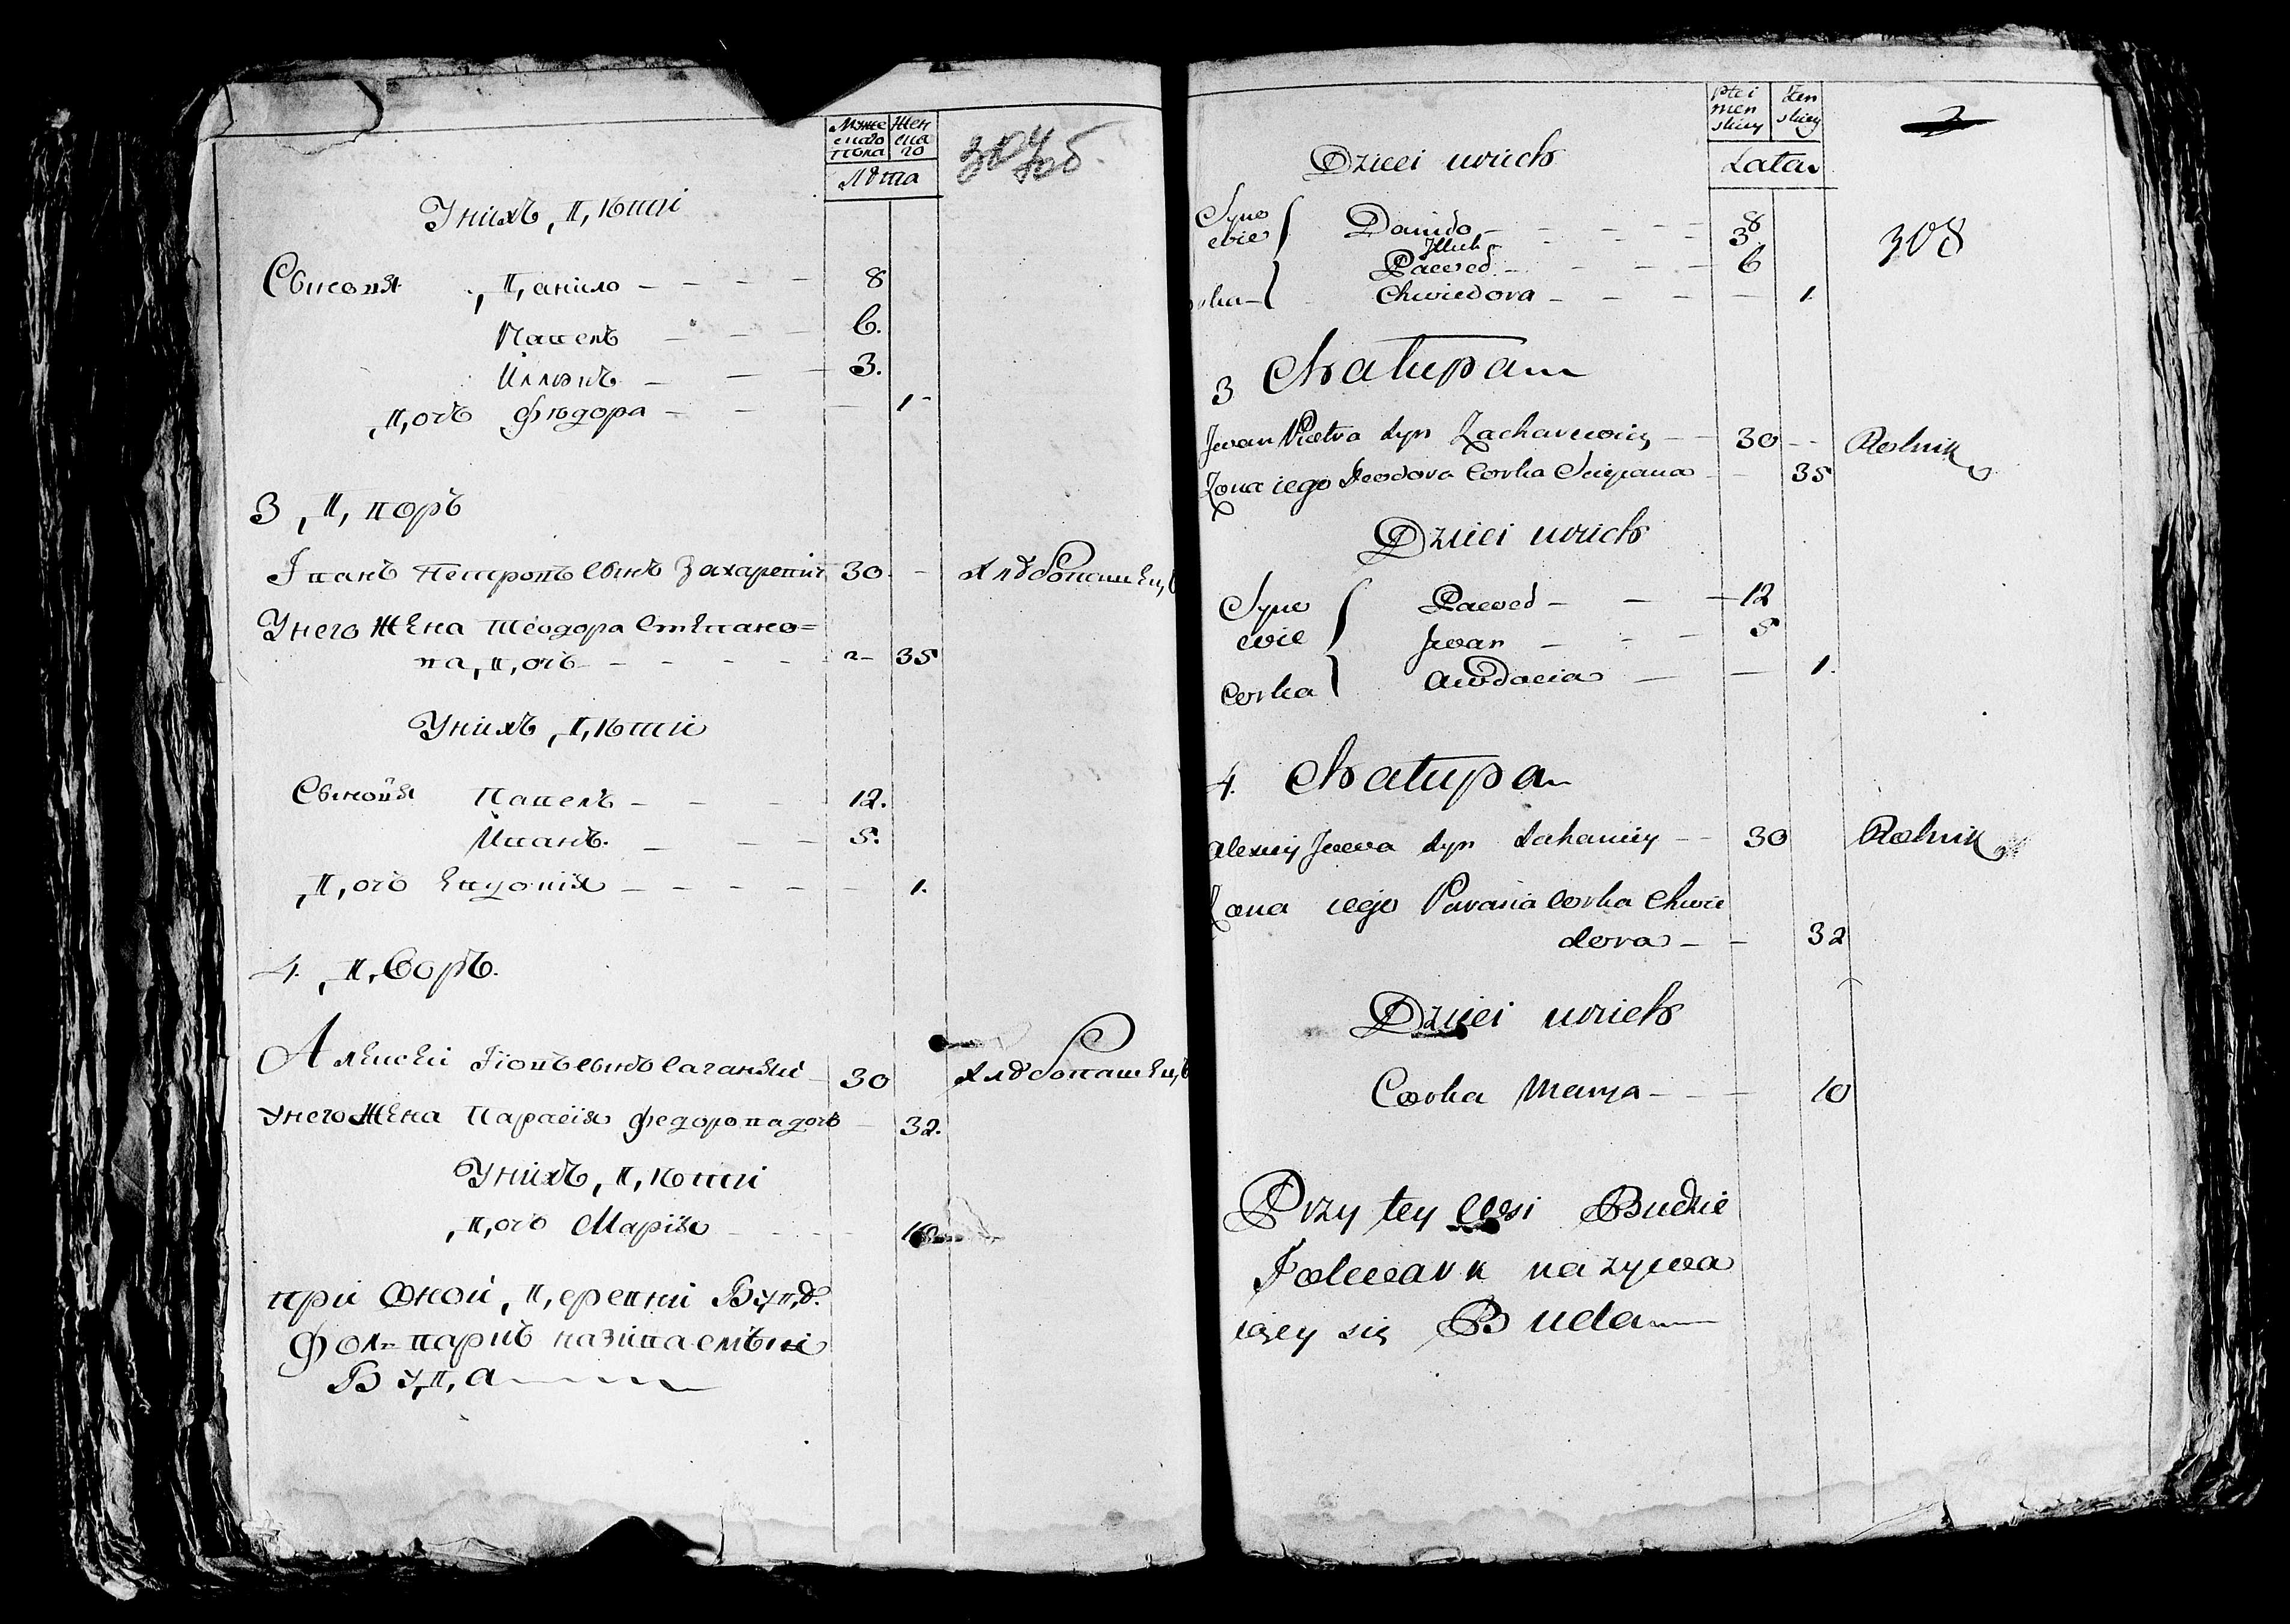 Муже Жен
скаго ска
пола го
Лѣта
307 об.
У нихъ Дѣти
Синовя Данило - - - 8
Павелъ - - - 6.
Иллюкъ - - - 3.
Дочь Фѣдора - - - 1
3 Дворъ
Іванъ Петровъ Синъ Захаревичъ 30 - Хлѣбопашецъ
У него жена Теодора Степано=
ва Дочь - - - 35
У нихъ Дѣти
Синовя Павелъ - - - 12.
Иванъ. - - - 5.
Дочь Евдокія - - - 1.
4. Дворъ.
Алексей Іовъ Синъ Саганей - 30 Хлѣбопашецъ
У него жена Парасія Федорова дочь - 32.
У нихъ Дѣти
Дочь Марія - - - 10
при оной Деревни Будѣ
Фол=варкъ називаемый
Буда
Płci Żen
męn skiey
skiey
Lata
2
308
Dzieci u nich
Syno wie Daniło - - - 8
Illuk - - - 3
Paweł - - - 6
orka Chwiedora - - - 1.
3 Chałupa
Jwan Piotra Syn Zacharewicz - - 30 - - Rolnik
Żona iego Teodora Corka Stepana - 35
Dzieci u nich
Syno wie Paweł - - - 12
Jwan - - - 5
Corka Awdocia - - - 1.
4. Chałupa
Alexiey Jowa Syn Sahaniey - - 30 Rolnik
Żona iego Parasia Corka Chwie
dora - - 32
Dzieci u nich
Corka Marya - - - 10
Przy tey Wsi Budzie
Folwark nazywa
iący się Buda